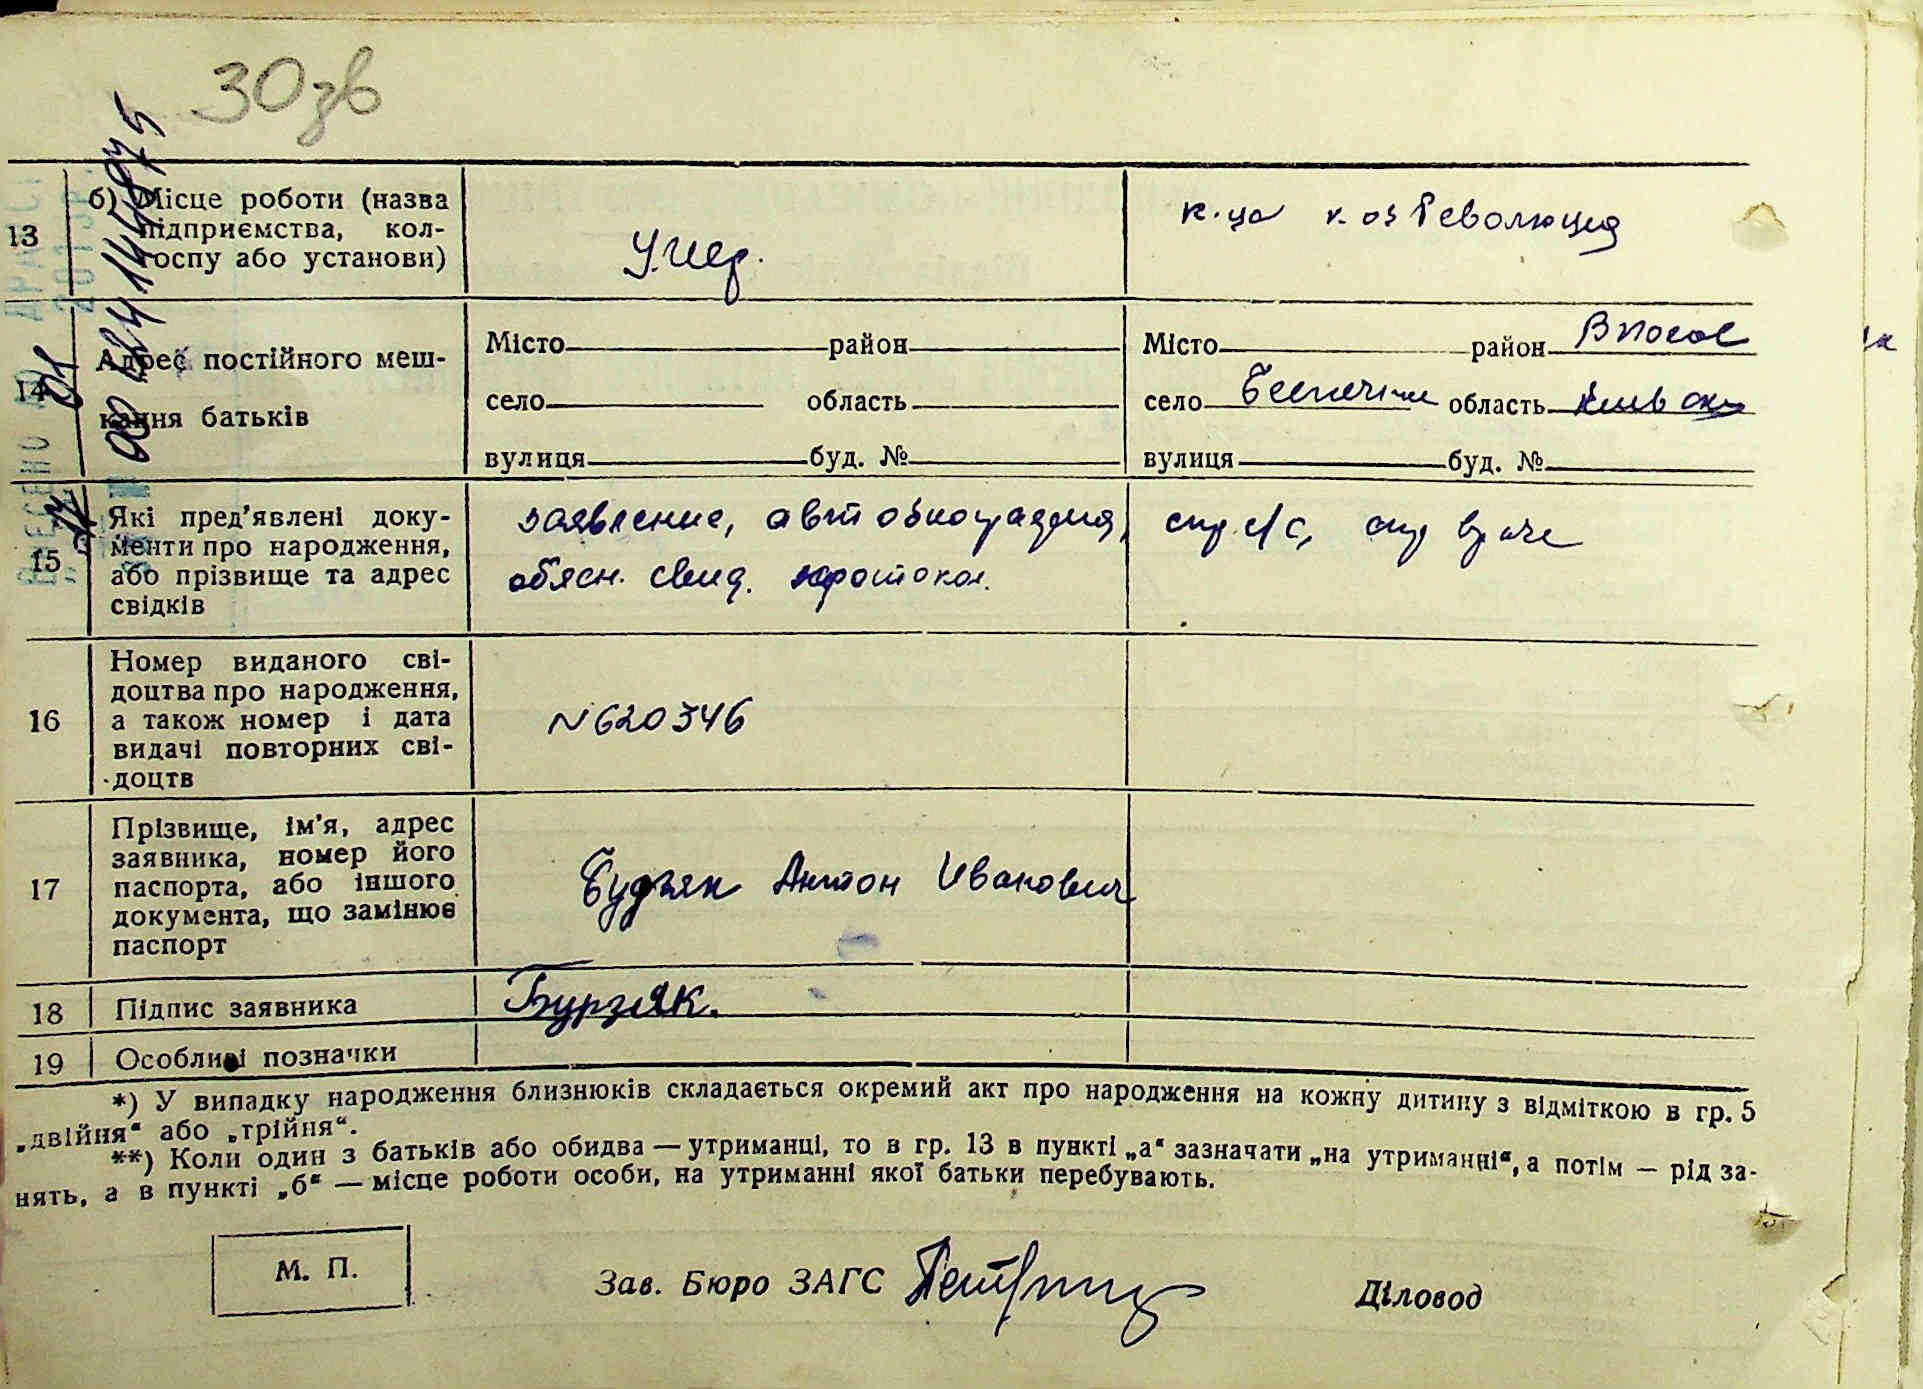 30зв
00124144875
13
б) Місце роботи (назва
підприємства, кол-
госпу або установи)
Умер.
к-ца к-оз Революция
14
Адрес постійного меш-
кання батьків
Місто район
село область
вулиця буд. №
Місто район
село область
вулиця буд. №
15
Які пред'явлені доку-
менти про народження,
або прізвище та адрес
свідків
заявление, автобиография,
обясн. свид. протокол.
спр. с/с, спр врача
16
Номер виданого сві-
доцтва про народження,
а також номер і дата
видачі повторних сві-
доцтв
N620346
17
Прізвище, ім'я, адрес
заявника, номер його
паспорта, або іншого
документа, що замінює
паспорт
Будзяк Антон Иванович
18
Підпис заявника
19
Особливі позначки
*) У випадку народження близнюків складається окремий акт про народження на кожну дитину з відміткою в гр. 5
„двійня“ або „трійня“.
**) Коли один з батьків або обидва — утриманці, то в гр. 13 в пункті „а“ зазначати „на утриманні“, а потім — рід за-
нять, а в пункті „б“ — місце роботи особи, на утриманні якої батьки перебувають.
М. П.
Зав. Бюро ЗАГС
Діловод